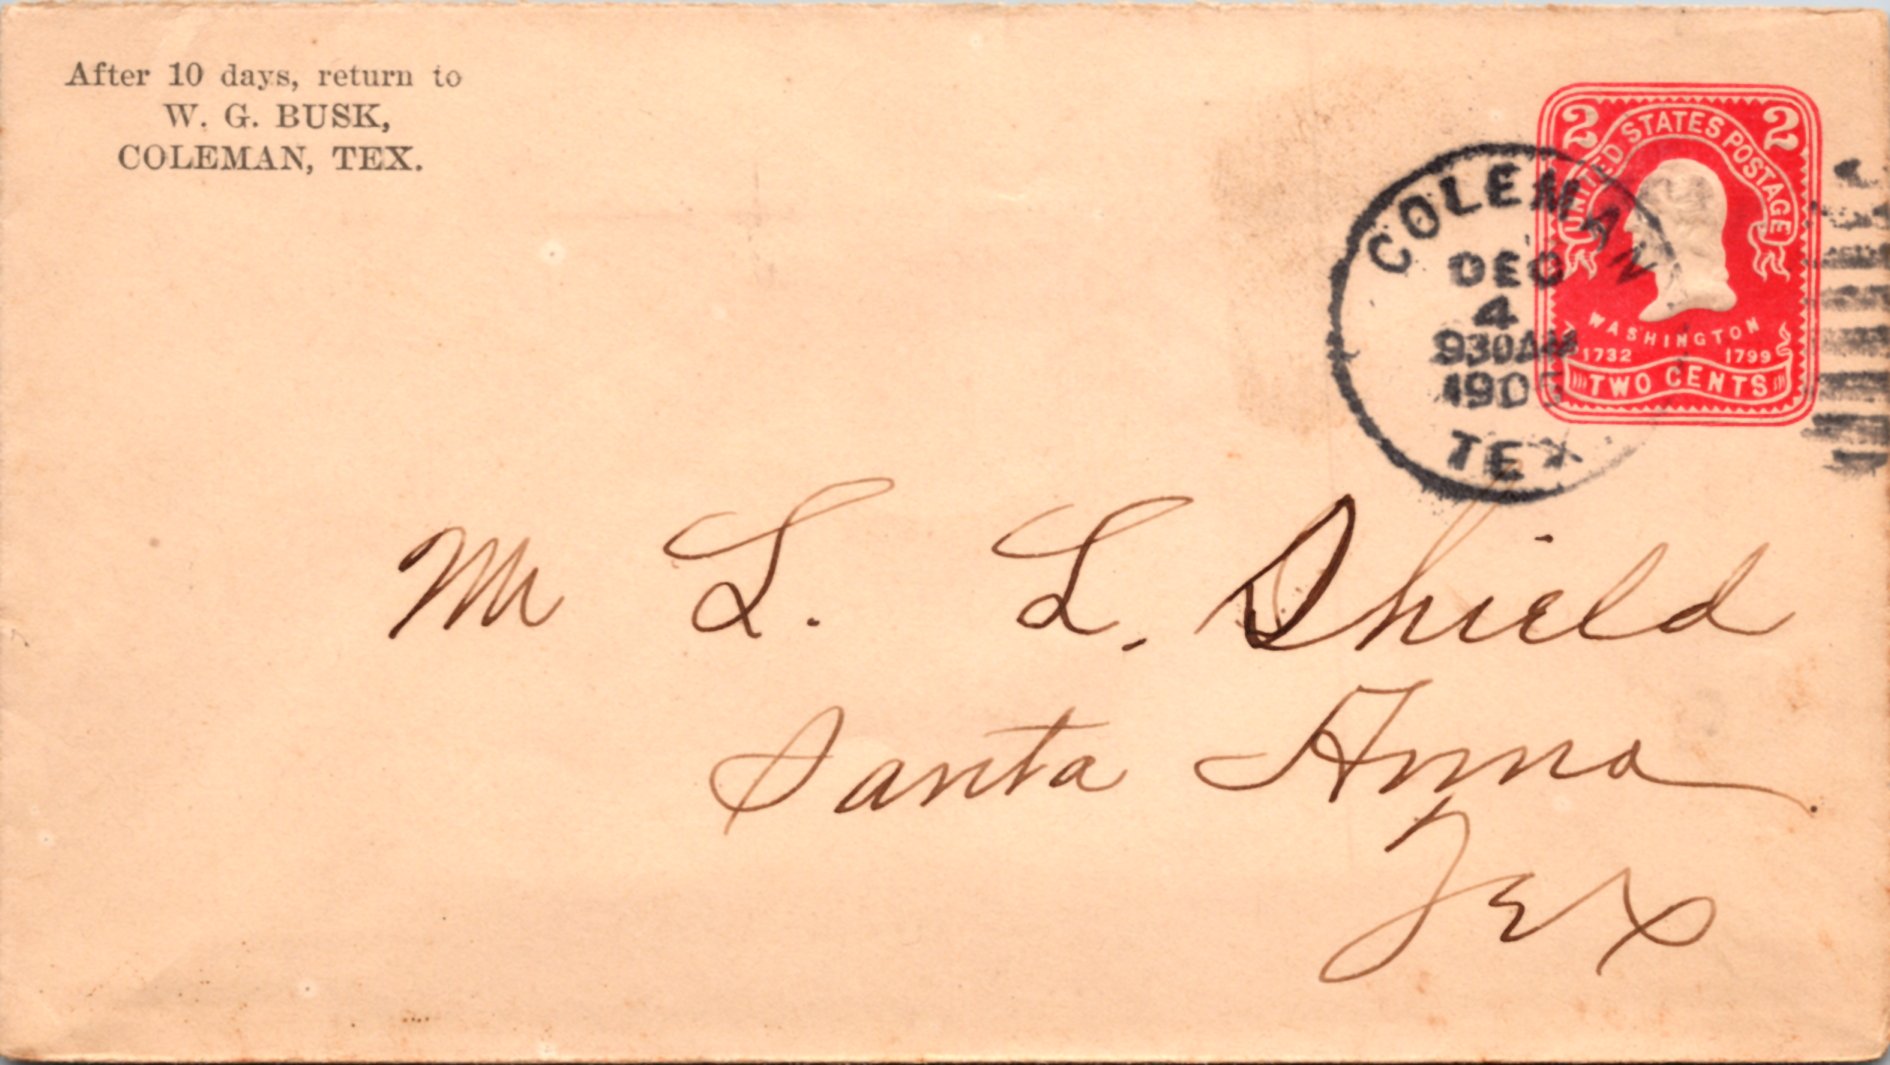 After 10 days, return to
W. G. BUSK,
COLEMAN, TEX.
2 2
UNITED STATES POSTAGE
WASHINGTON
1732 1799
TWO CENTS
COLEMAN
DEC
4
930AM
TEX
Mr L. L. Shield
Santa Anna
Tex